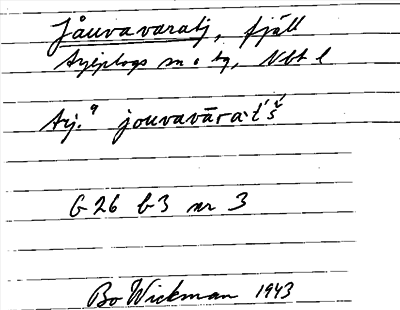 Jåuvavaratj, fjäll
Arjeplogs sn o tg, Nbt l
Arj. a jouvavāra·t́š
G 26 b 3 nr 3
Bo Wickman 1943